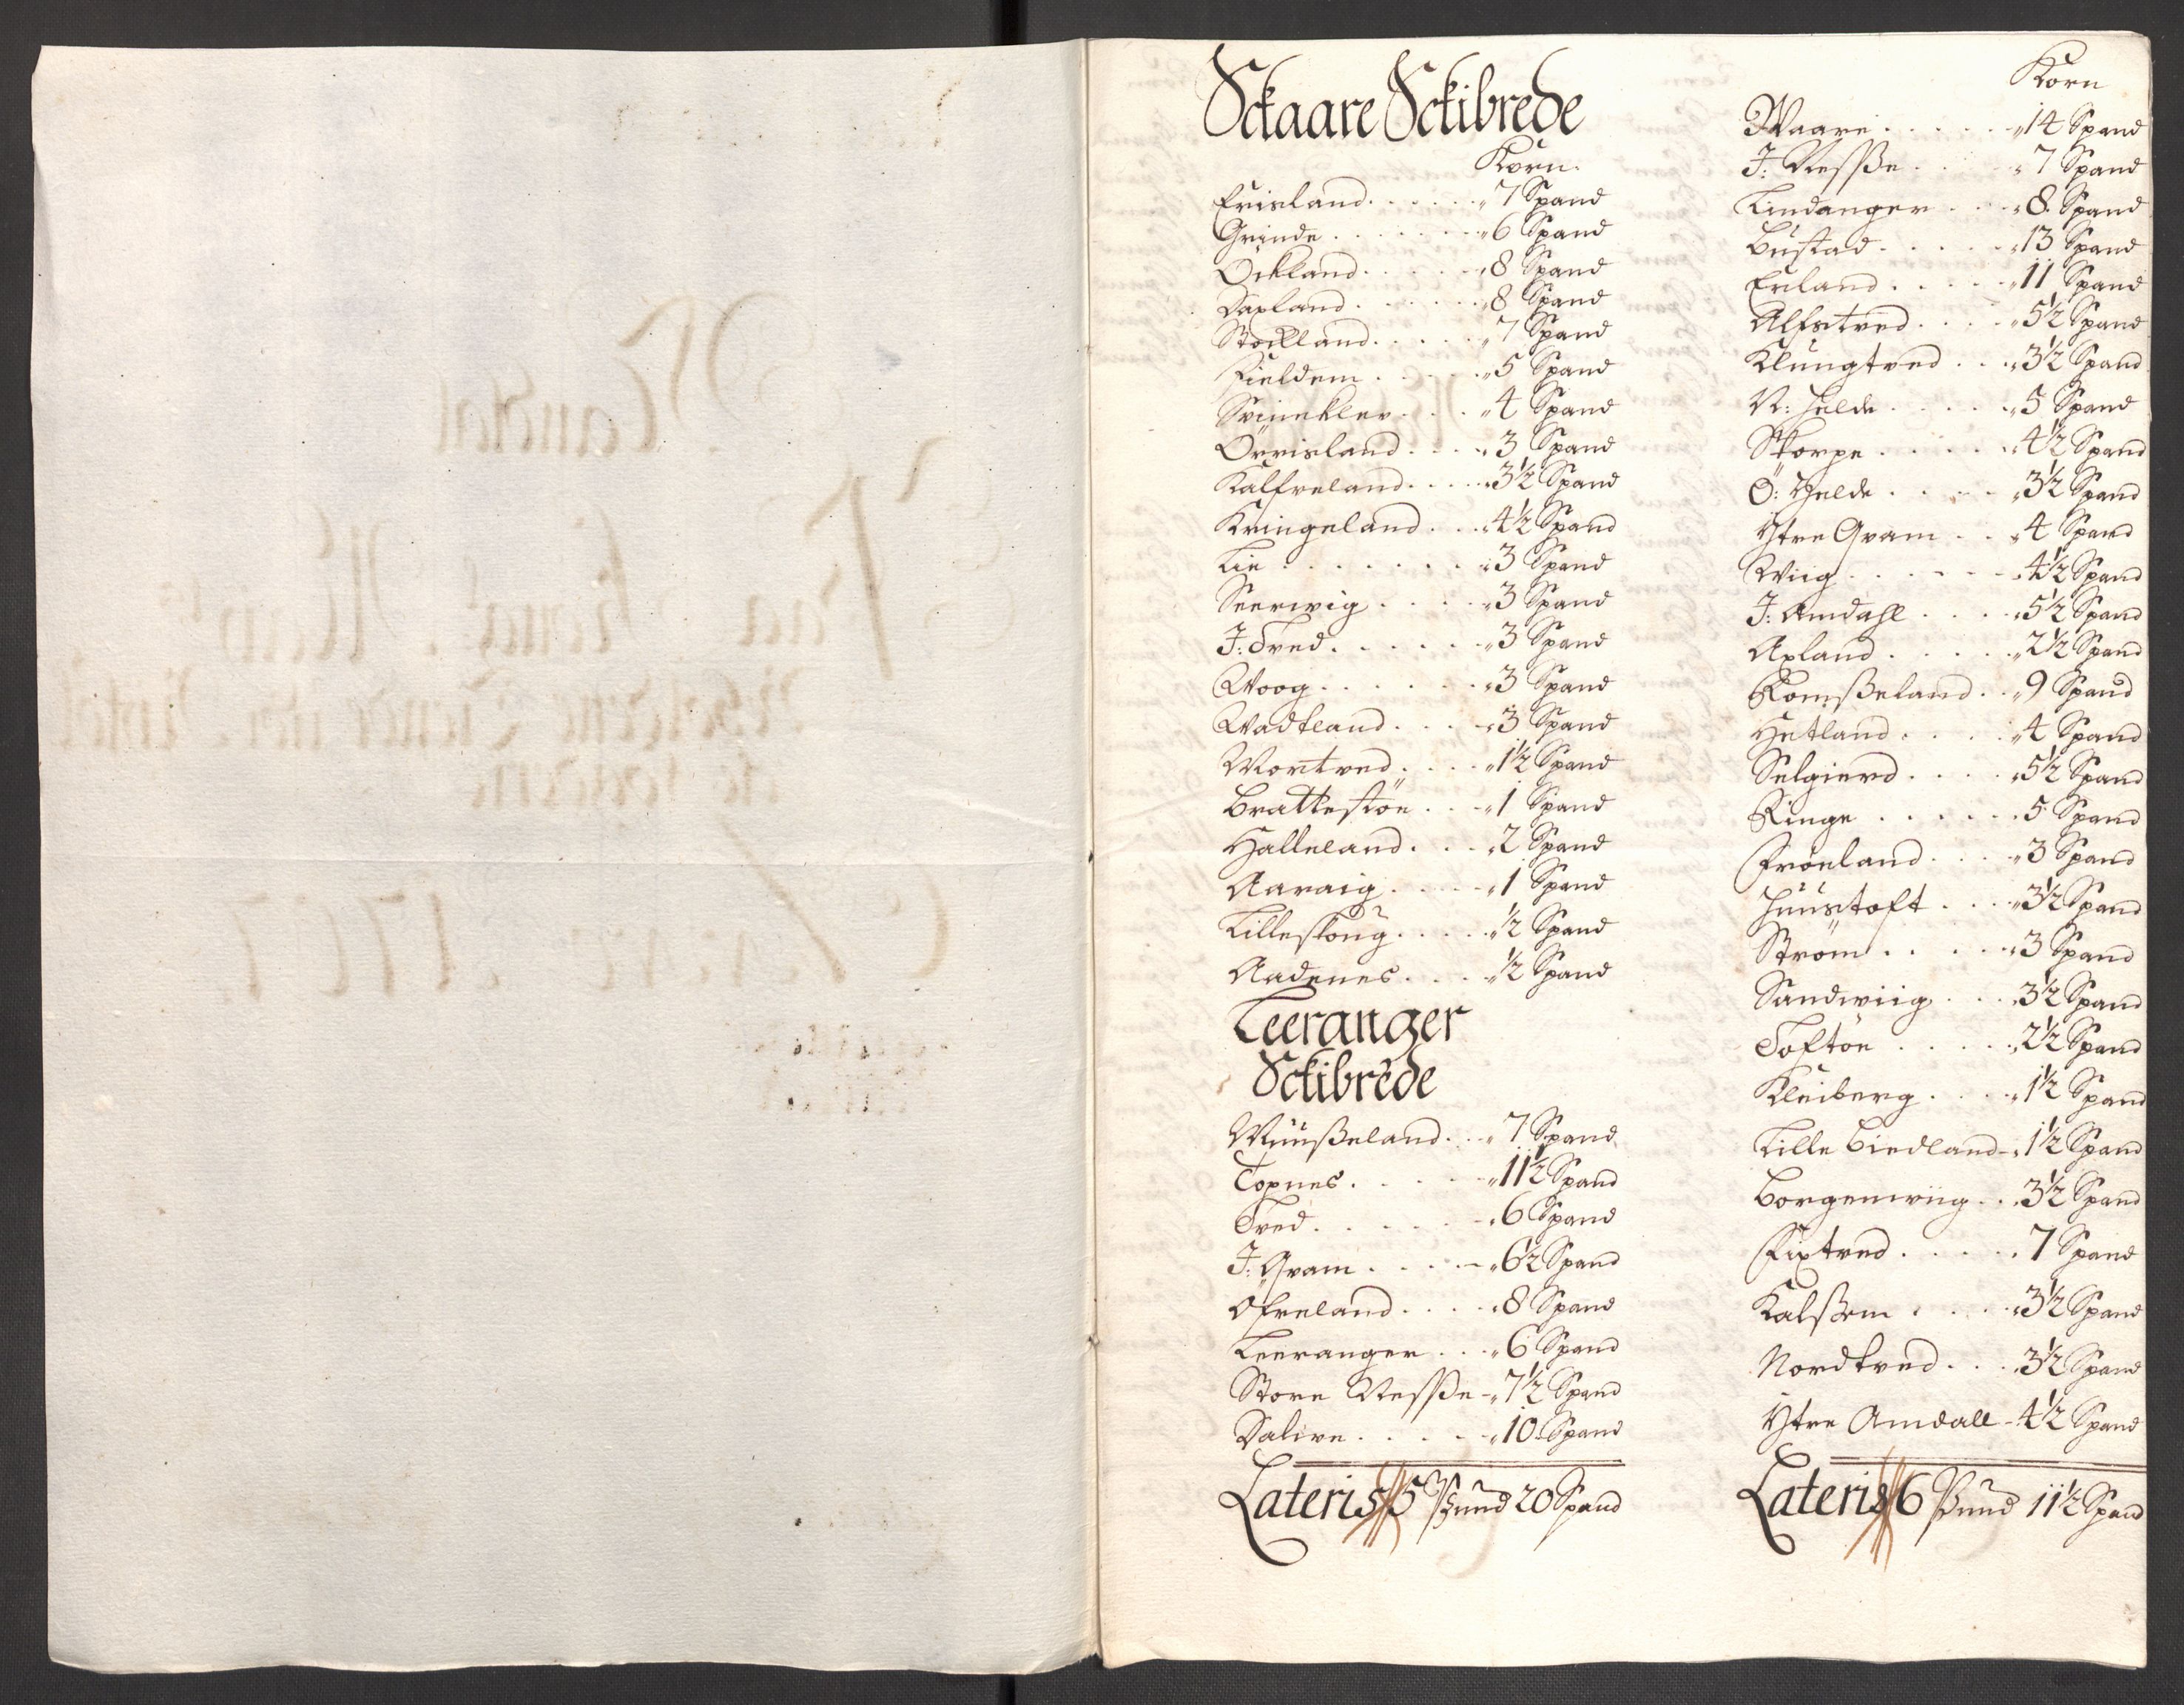 Sckaare Sckibrede
Korn
Frisland . . . . . . 7 Spand
Grinde . . . . . . . 6 Spand
Öckland . . . . . . 8 Spand
Daxland . . . . . . 8 Spand
Stockland . . . . . 7 Spand
Fieldem . . . . . 5 Spand
Svinekler . . . 4 Spand
Örrisland . . . . 3 Spand
Kalfveland . . . . 3½ Spand
Kringeland . . . 4½ Spand
Lie . . . . . . . 3 Spand
Seerwig . . . . 3 Spand
J: Tved . . . . . 3 Spand
Woog . . . . . . 3 Spand
Wadtland . . . . 3 Spand
Mortved . . . . 1½ Spand
Bratteston . . . 1 Spand
Halleland . . . 2 Spand
Aaraig . . . . 1 Spand
Lilleskoug . . . . ½ Spand
Aadenes . . . . ½ Spand
Leeranger
Sckibrede
Muusßeland . . . 7 Spand
Topnes . . . . . 11½ Spand
Tved . . . . . . 6 Spand
J: Qvam . . . . 6½ Spand
Ofreland . . . . 8 Spand
Leeranger . . . 6 Spand
Store Nesße - 7½ Spand
Dalive . . . . . 10 Spand
Lateris 5 Pund 20 Spand
Korn
Waare . . . . . 14 Spand
J: Nesße . . . . 7 Spand
Lindanger . . . 8 Spand
Bustad . . . . . 13 Spand
Erland . . . . . 11 Spand
Alfstved . . . . 5½ Spand
Klungtved . . . 3½ Spand
N: Helde . . . . . 5 Spand
Storpe . . . . . 4½ Spand
Ö: Helde . . . . 3½ Spand
Ytre Qvam . . 4 Spand
Wiig . . . . . . 4½ Spand
J: Amdahl . . . . 5½ Spand
Axland . . . . . 2½ Spand
Romsßeland . . 9 Spand
Hetland . . . . 4 Spand
Selgierd . . . . 5½ Spand
Ringe . . . . . . 5 Spand
Fröeland . . . . 3 Spand
Huustoft . . . 3½ Spand
Ström . . . . . 3 Spand
Sandwiig . . . 3½ Spand
Toftön . . . . . 2½ Spand
Kleiberg . . . . 1½ Spand
Lille Biedland - 1½ Spand
Borgenwiig . . . 3½ Spand
Fixtved . . . . . 7 Spand
Kalsßem . . . . 3½ Spand
Nordtved . . . 3½ Spand
Ytre Amdall - 4½ Spand
Lateris 6 Pund 11½ Spand